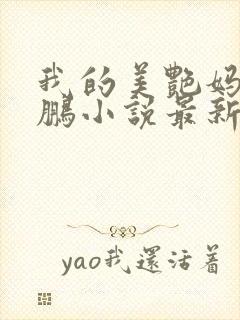 我的美艷媽
鵬小說最新
yao我還活着